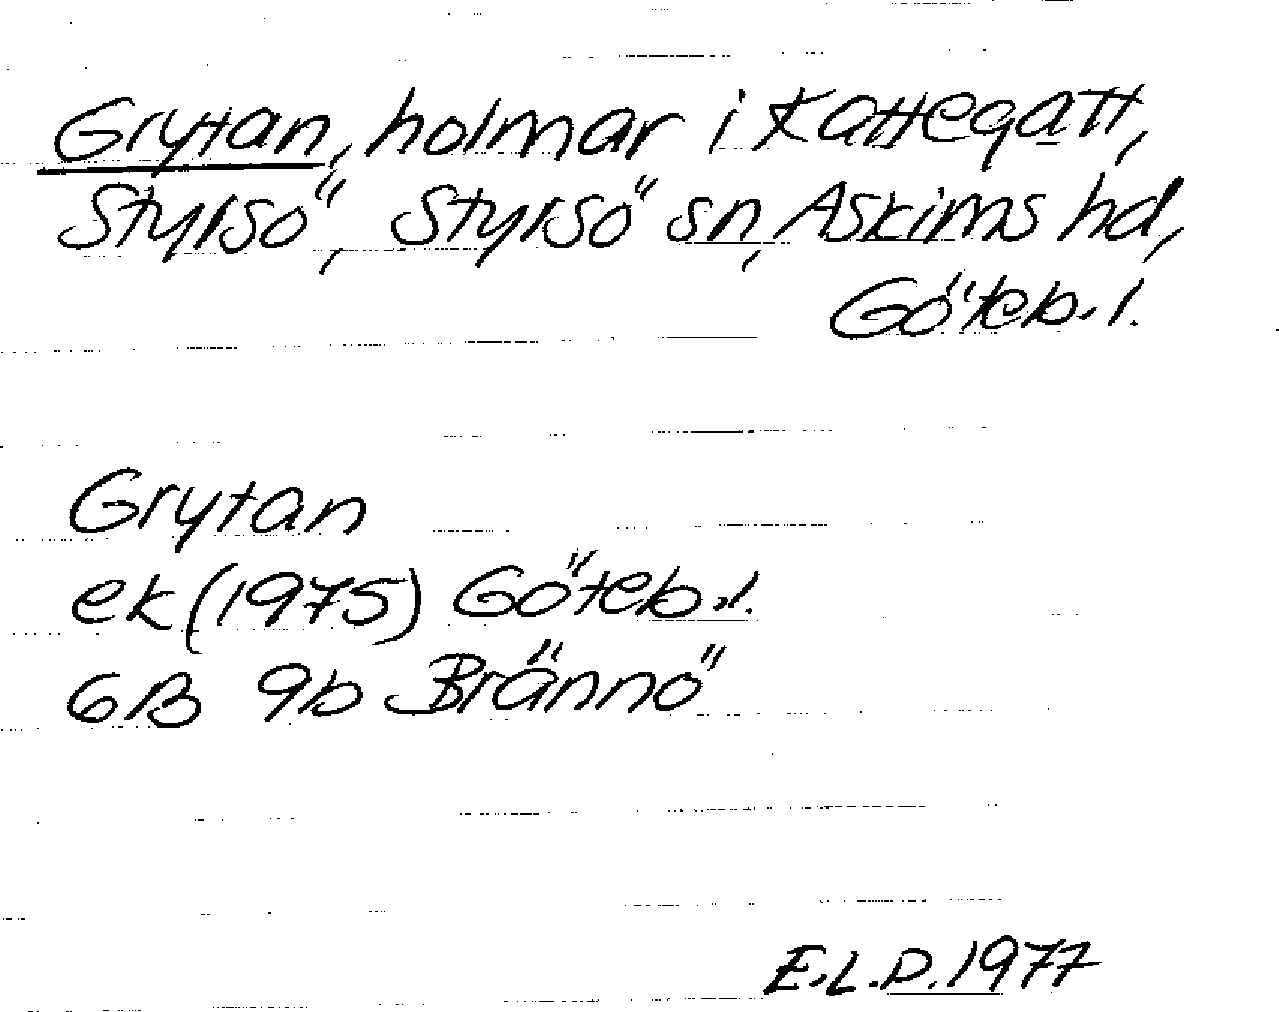 Grytan, holmar i Kattegatt,
Styrsö, Styrsö sn, Askims hd,
Göteb. l.
Grytan
ek (1975) Göteb. l.
6B 9b Brännö
E.L.D. 1977